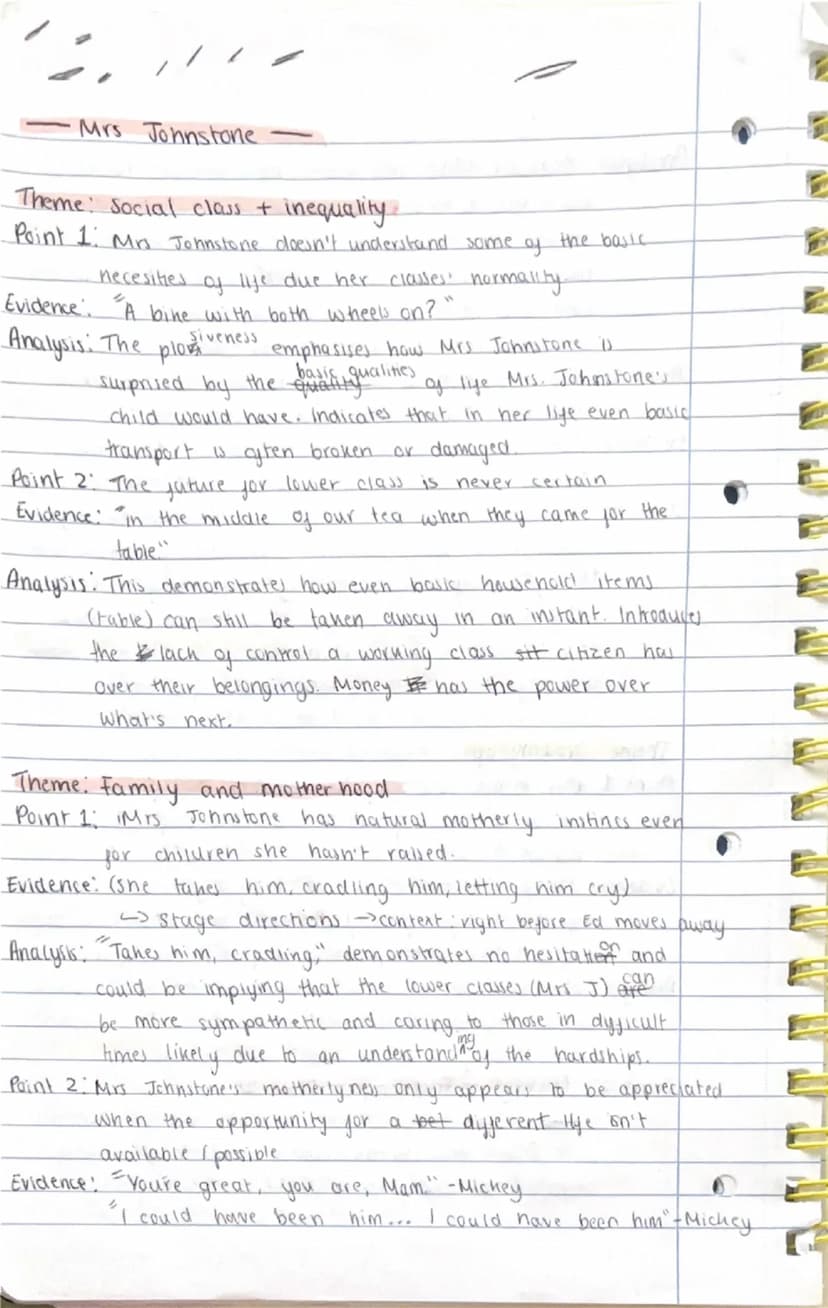 — Mrs Johnstone —
Theme: Social class + inequality
Point 1: Mrs Johnstone doesn't understand some of the basic
necesities of life due her classes' normality
Evidence: "A bike with both wheels on?"
Analysis: The plosiveness emphasises how Mrs Johnstone is
surprised by the basic qualities of life Mrs. Johnstone's
child would have. Indicates that in her life even basic
transport is often broken or damaged.
Point 2: The future for lower class is never certain
Evidence: "in the middle of our tea when they came for the
table"
Analysis: This demonstrates how even basic household items
(table) can still be taken away in an instant. Introduces
the lack of control a working class citizen has
over their belongings. Money has the power over
what's next.
Theme: Family and motherhood
Point 1: Mrs Johnstone has natural motherly instincs even
for children she hasn't raised.
Evidence: (She takes him, cradling him, letting him cry)
↳ Stage directions → context: right before Ed moves away
Analysis: "Takes him, cradling," demonstrates no hesitation and
could be implying that the lower classes (Mrs J) can
be more sympathetic and caring to those in difficult
times likely due to an understanding of the hardships.
Point 2: Mrs Johnstone's motherlyness only appears to be appreciated
when the opportunity for a different life isn't
available / possible
Evidence: "You're great, you are, Mam." - Mickey
"I could have been him... I could have been him" - Mickey